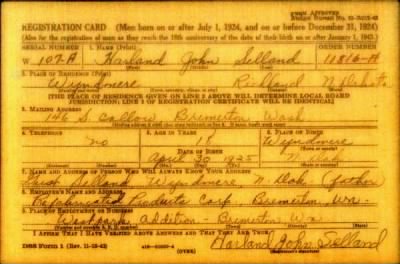 FORM APPROVED
REGISTRATION CARD (Men born on or after July 1, 1924, and on or before December 31, 1924)
SERIAL NUMBER 1. NAME (Print) ORDER NUMBER
W 107-A Harland John Selland 11816-A
(First) (Middle) (Last)
2. PLACE OF RESIDENCE (Print)
Wyndmere Richland N. Dakota
[THE PLACE OF RESIDENCE GIVEN ON LINE 2 ABOVE WILL DETERMINE LOCAL BOARD
JURISDICTION; LINE 2 OF REGISTRATION CERTIFICATE WILL BE IDENTICAL]
3. MAILING ADDRESS
146 S. Callow Bremerton Wash
4. TELEPHONE 5. AGE IN YEARS 6. PLACE OF BIRTH
no 18 Wyndmere
DATE OF BIRTH
April 30 1925 N. Dak
7. NAME AND ADDRESS OF PERSON WHO WILL ALWAYS KNOW YOUR ADDRESS
Wyndmere, N. Dak (father
8. EMPLOYER'S NAME AND ADDRESS
Prefabricated Products Corp. Bremerton, Wn.
9. PLACE OF EMPLOYMENT OR BUSINESS
Westpark addition - Bremerton Wn
I AFFIRM THAT I HAVE VERIFIED ABOVE ANSWERS AND THAT THEY ARE TRUE.
DSS Form 1 (Rev. 11-16-42) (OVER) Harland John Selland